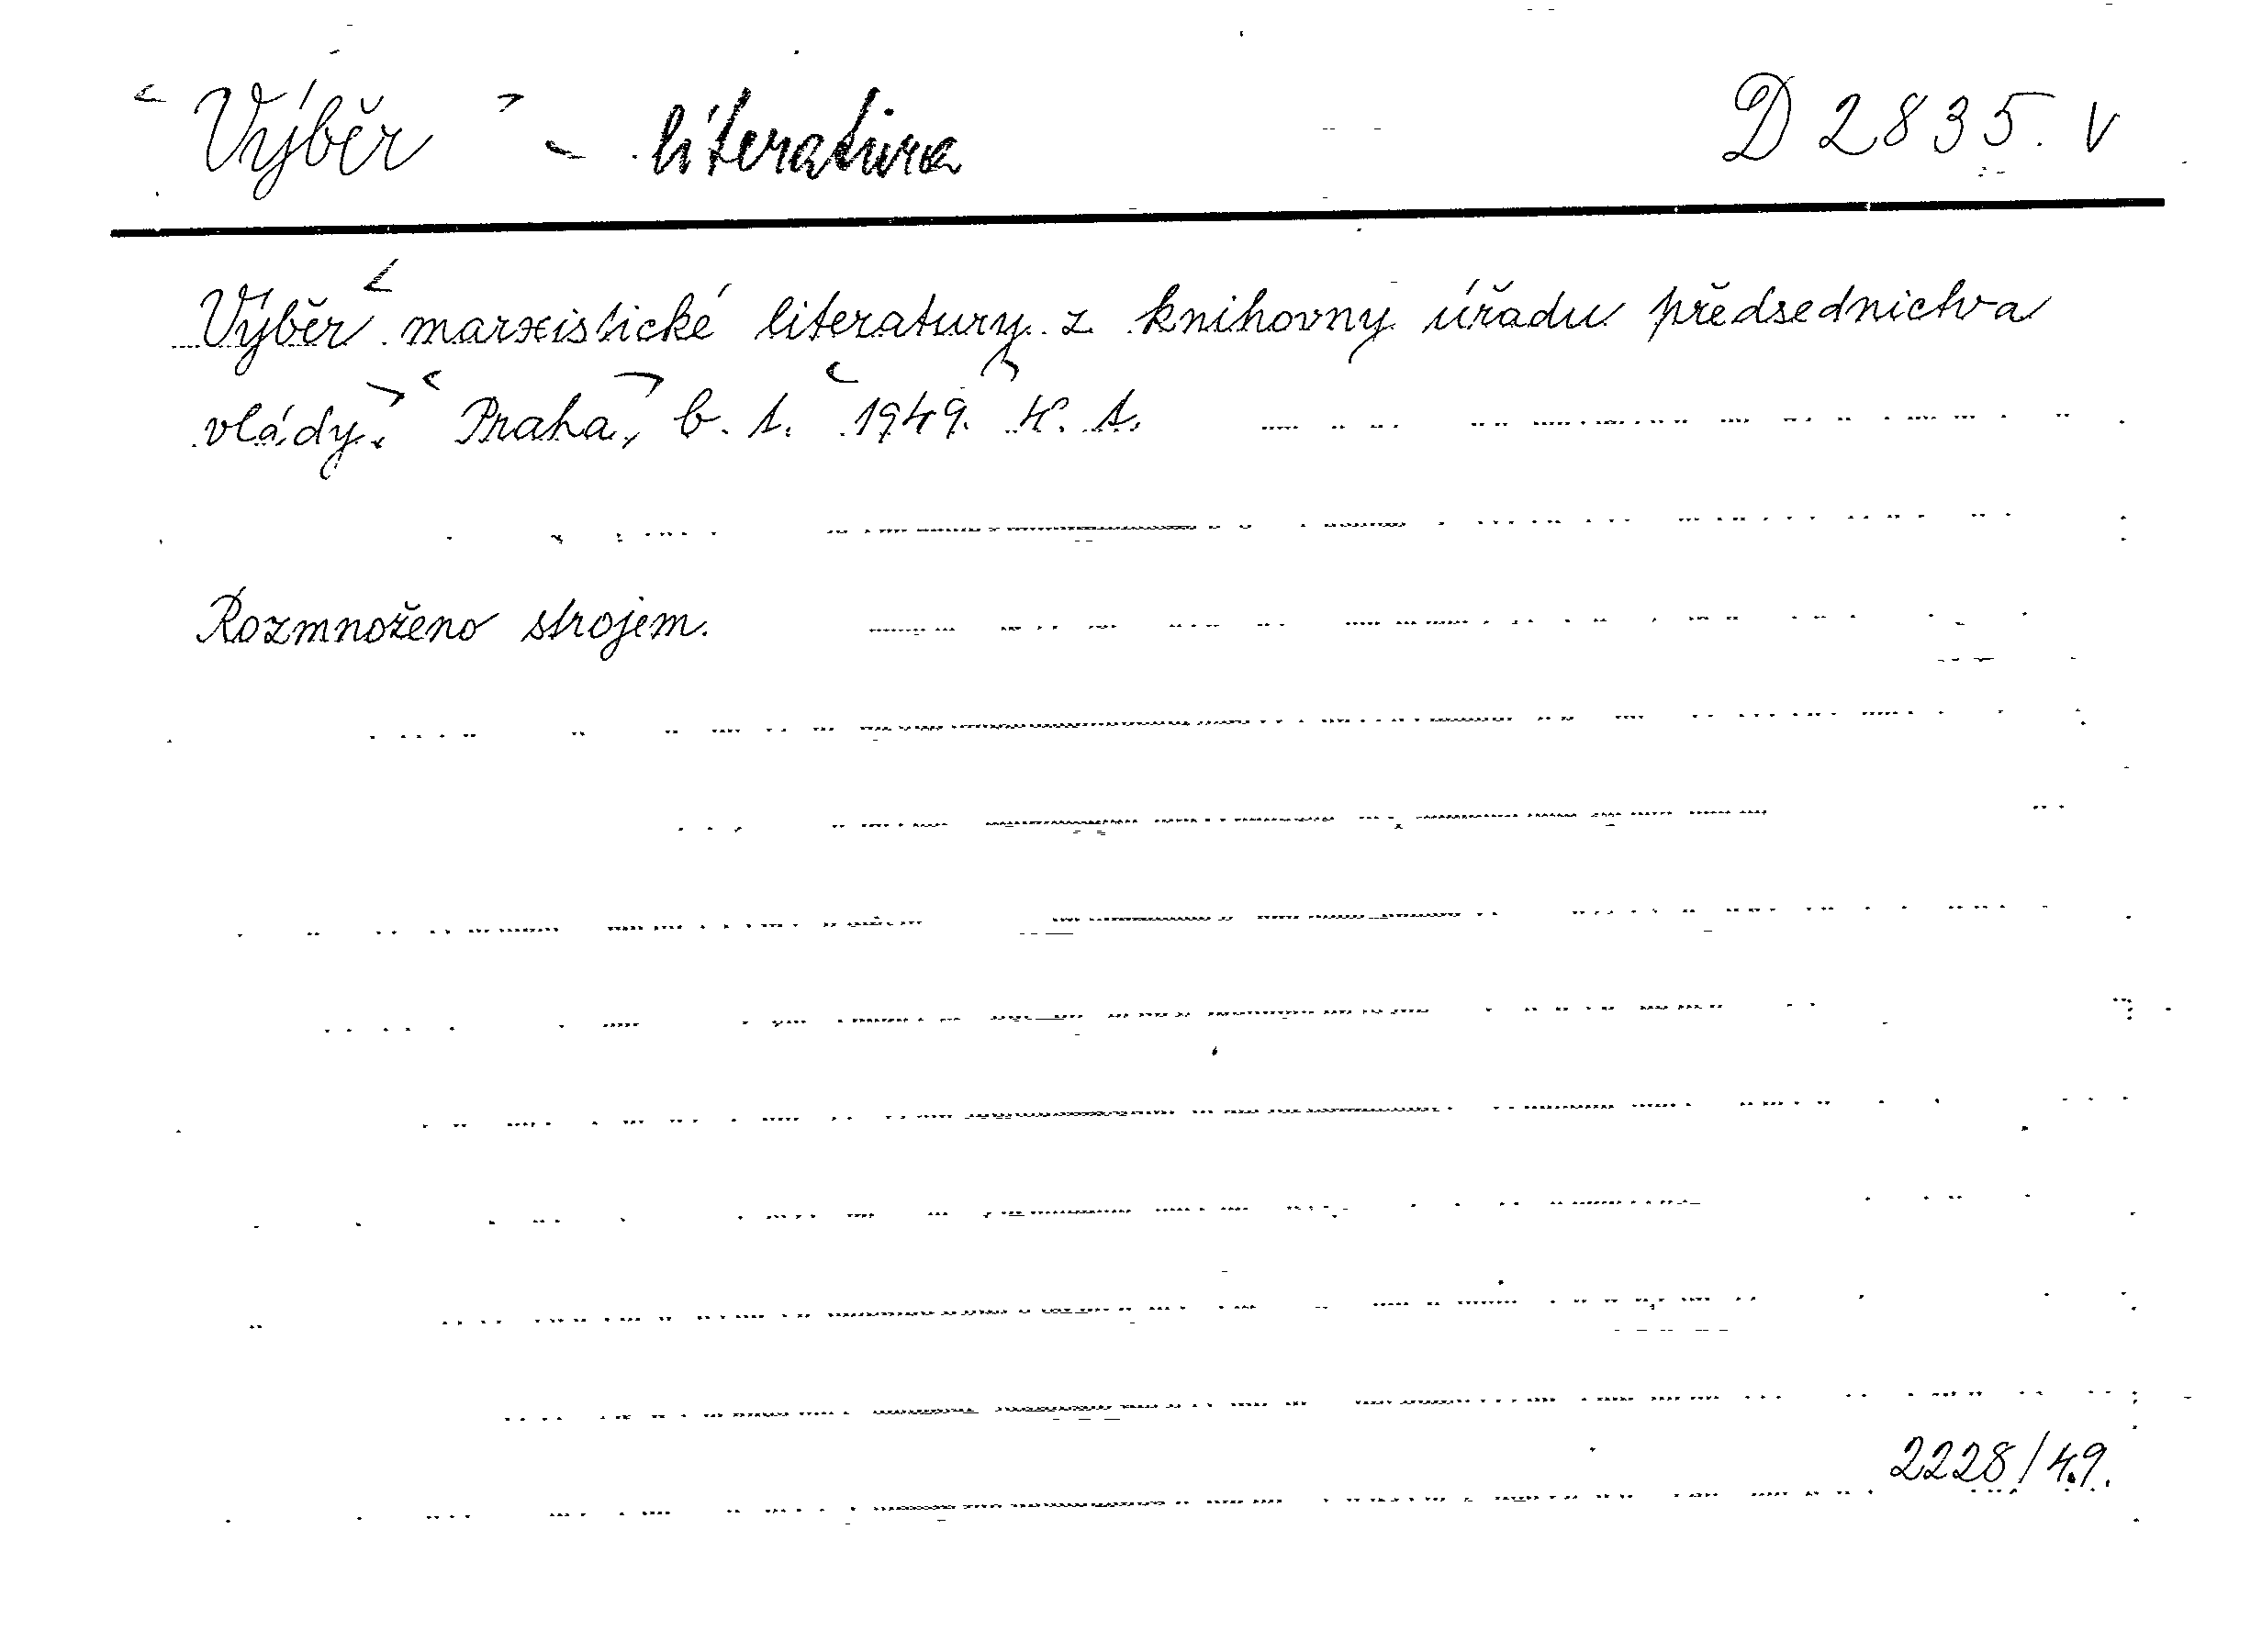 < Výběr > - literatura D 2835. V
Výběr < marxistické literatury z knihovny úřadu předsednictva
vlády. > < Praha, > b. t. < 1949. > 4°. A.
Rozmnoženo strojem.
2228/49.